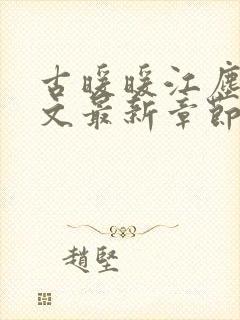 古暖暖江塵
文最新章節
趙堅